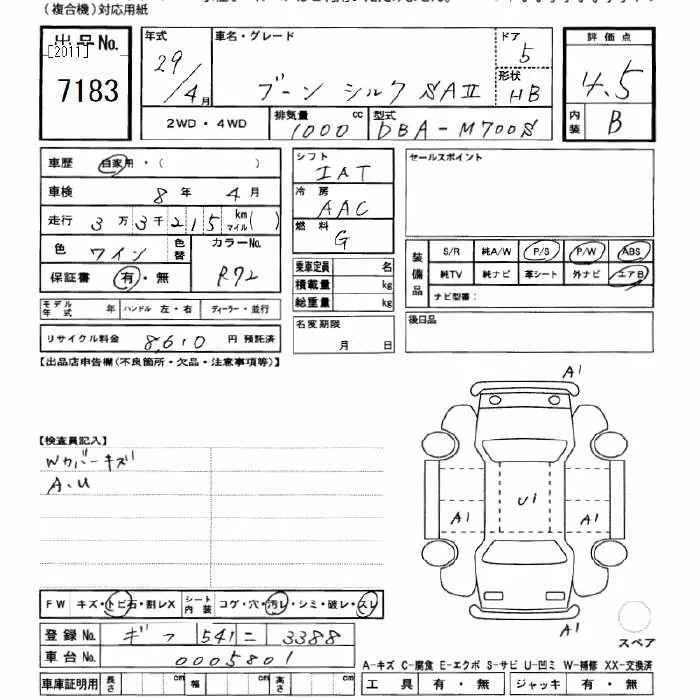 (複合機)対応用紙
出品No.
[2011]
7183
年式
29/4月
車名・グレード
ブーン シルク SAⅡ
ドア
5
形状
HB
評価点
4.5
内装
B
2WD・4WD
排気量
1000 cc
型式
DBA-M700S
車歴 自家用・( )
車検 8年 4月
走行 3万3千215 km マイル( )
色 ワイン 色替
カラーNo.
R72
保証書 有・無
シフト
IAT
冷房
AAC
燃料
G
乗車定員 名
積載量 kg
総重量 kg
セールスポイント
装備品
S/R 純A/W P/S P/W ABS
純TV 純ナビ 革シート 外ナビ エアB
ナビ型番:
モデル年式 年 ハンドル 左・右 ディーラー・並行
リサイクル料金 8,610 円 預託済
名変期限
月 日
後日品
【出品店申告欄(不良箇所・欠品・注意事項等)】
【検査員記入】
Wカバーキズ
A.U
A1
U1
A1
A1
A1
スペア
FW キズ・トビ石・割レX シート内装 コゲ・穴・汚レ・シミ・破レ・スレ
登録No. ギフ 541 ニ 3388
車台No. 0005801
A-キズ C-腐食 E-エクボ S-サビ U-凹ミ W-補修 XX-交換済
車庫証明用 長さ cm 幅 cm 高さ cm
工具 有・無 ジャッキ 有・無